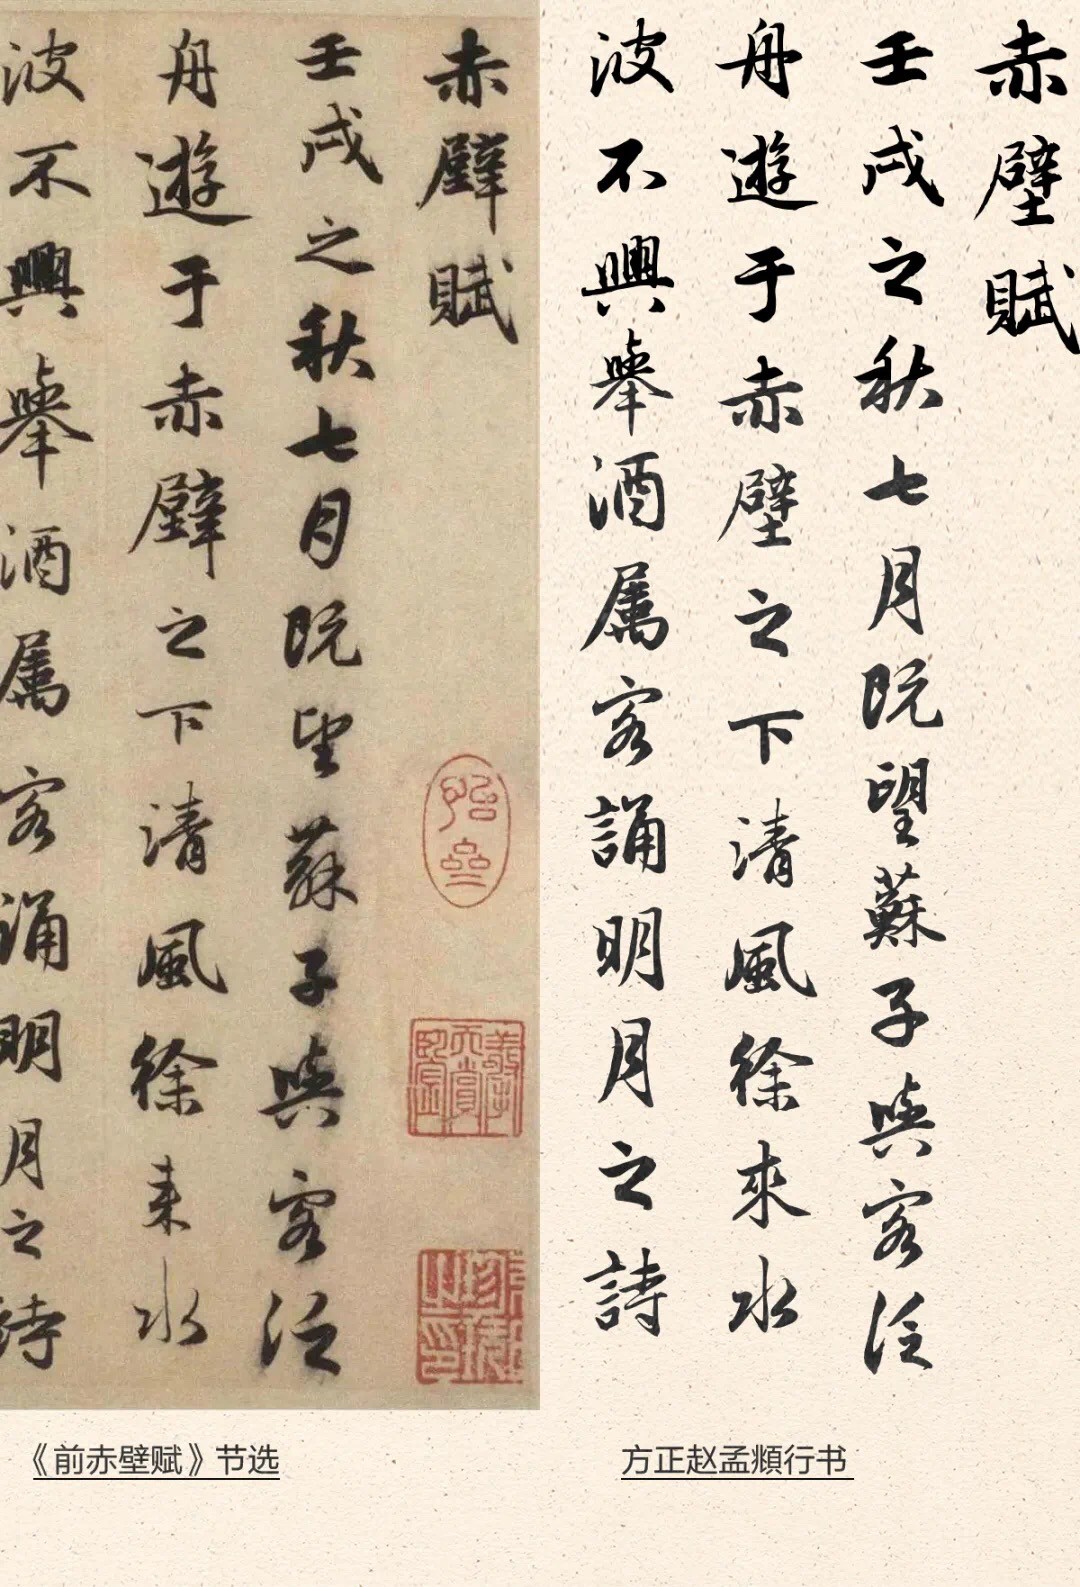 赤壁賦
壬戌之秋七月既望蘇子與客泛
舟遊于赤壁之下清風徐来水
波不興舉酒属客誦明月之詩
赤壁賦
壬戌之秋七月既望蘇子與客泛
舟遊于赤壁之下清風徐來水
波不興舉酒属客誦明月之詩
《前赤壁赋》节选
方正赵孟頫行书